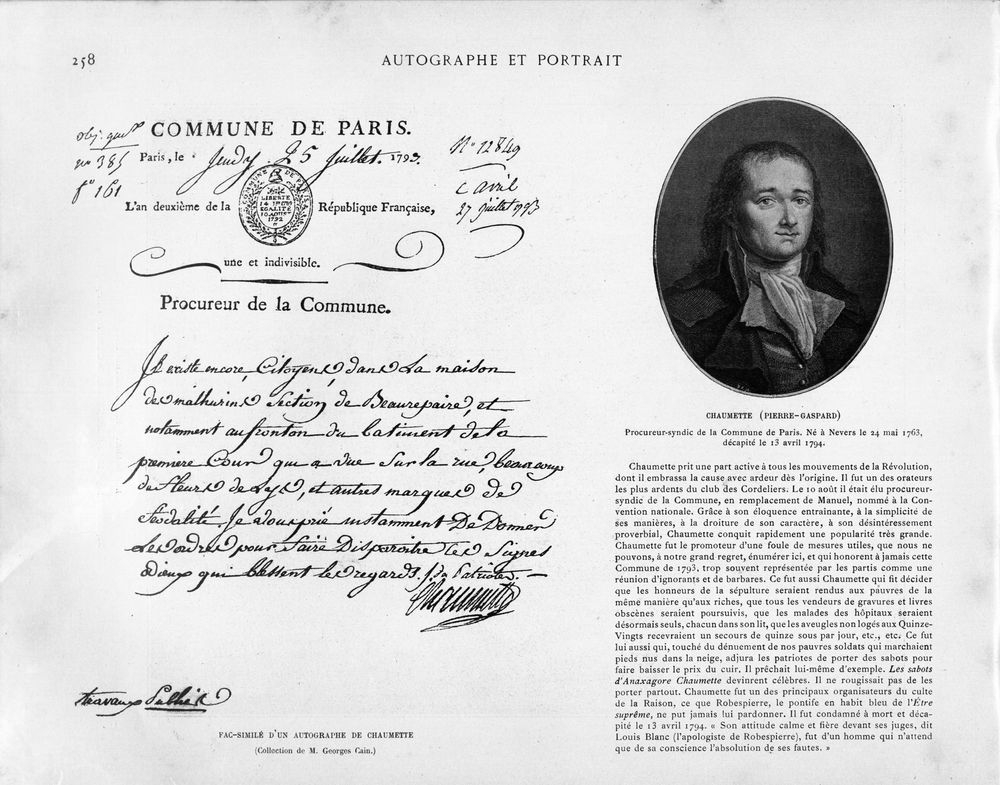 258
AUTOGRAPHE ET PORTRAIT
COMMUNE DE PARIS.
n° 385
Paris, le Jeudy 25 Juillet 1793.
N° 12849
f° 161
c avril
27 juillet 1793
L'an deuxième de la République Française,
COMMUNE DE PARIS
LIBERTÉ
EGALITÉ
10 AOUST
1792
une et indivisible.
Procureur de la Commune.
Il existe encore, Citoyens, dans la maison
des mathurins Section de Beaurepaire, et
notamment au fronton du batiment de la
premiere Cour qui a vue sur la rue, beaucoup
de fleurs de Lys, et autres marques de
feodalité. Je vous prie instamment De Donner
Les ordres pour faire Disparoitre les Signes
odieux qui blessent les regards des Patriotes. —
Chaumette
travaux Publics
FAC-SIMILÉ D'UN AUTOGRAPHE DE CHAUMETTE
(Collection de M. Georges Cain.)
CHAUMETTE (PIERRE-GASPARD)
Procureur-syndic de la Commune de Paris. Né à Nevers le 24 mai 1763,
décapité le 13 avril 1794.
Chaumette prit une part active à tous les mouvements de la Révolution,
dont il embrassa la cause avec ardeur dès l'origine. Il fut un des orateurs
les plus ardents du club des Cordeliers. Le 10 août il était élu procureur-
syndic de la Commune, en remplacement de Manuel, nommé à la Con-
vention nationale. Grâce à son éloquence entrainante, à la simplicité de
ses manières, à la droiture de son caractère, à son désintéressement
proverbial, Chaumette conquit rapidement une popularité très grande.
Chaumette fut le promoteur d'une foule de mesures utiles, que nous ne
pouvons, à notre grand regret, énumérer ici, et qui honorent à jamais cette
Commune de 1793, trop souvent représentée par les partis comme une
réunion d'ignorants et de barbares. Ce fut aussi Chaumette qui fit décider
que les honneurs de la sépulture seraient rendus aux pauvres de la
même manière qu'aux riches, que tous les vendeurs de gravures et livres
obscènes seraient poursuivis, que les malades des hôpitaux seraient
désormais seuls, chacun dans son lit, que les aveugles non logés aux Quinze-
Vingts recevraient un secours de quinze sous par jour, etc., etc. Ce fut
lui aussi qui, touché du dénuement de nos pauvres soldats qui marchaient
pieds nus dans la neige, adjura les patriotes de porter des sabots pour
faire baisser le prix du cuir. Il prêchait lui-même d'exemple. Les sabots
d'Anaxagore Chaumette devinrent célèbres. Il ne rougissait pas de les
porter partout. Chaumette fut un des principaux organisateurs du culte
de la Raison, ce que Robespierre, le pontife en habit bleu de l'Être
suprême, ne put jamais lui pardonner. Il fut condamné à mort et déca-
pité le 13 avril 1794. « Son attitude calme et fière devant ses juges, dit
Louis Blanc (l'apologiste de Robespierre), fut d'un homme qui n'attend
que de sa conscience l'absolution de ses fautes. »